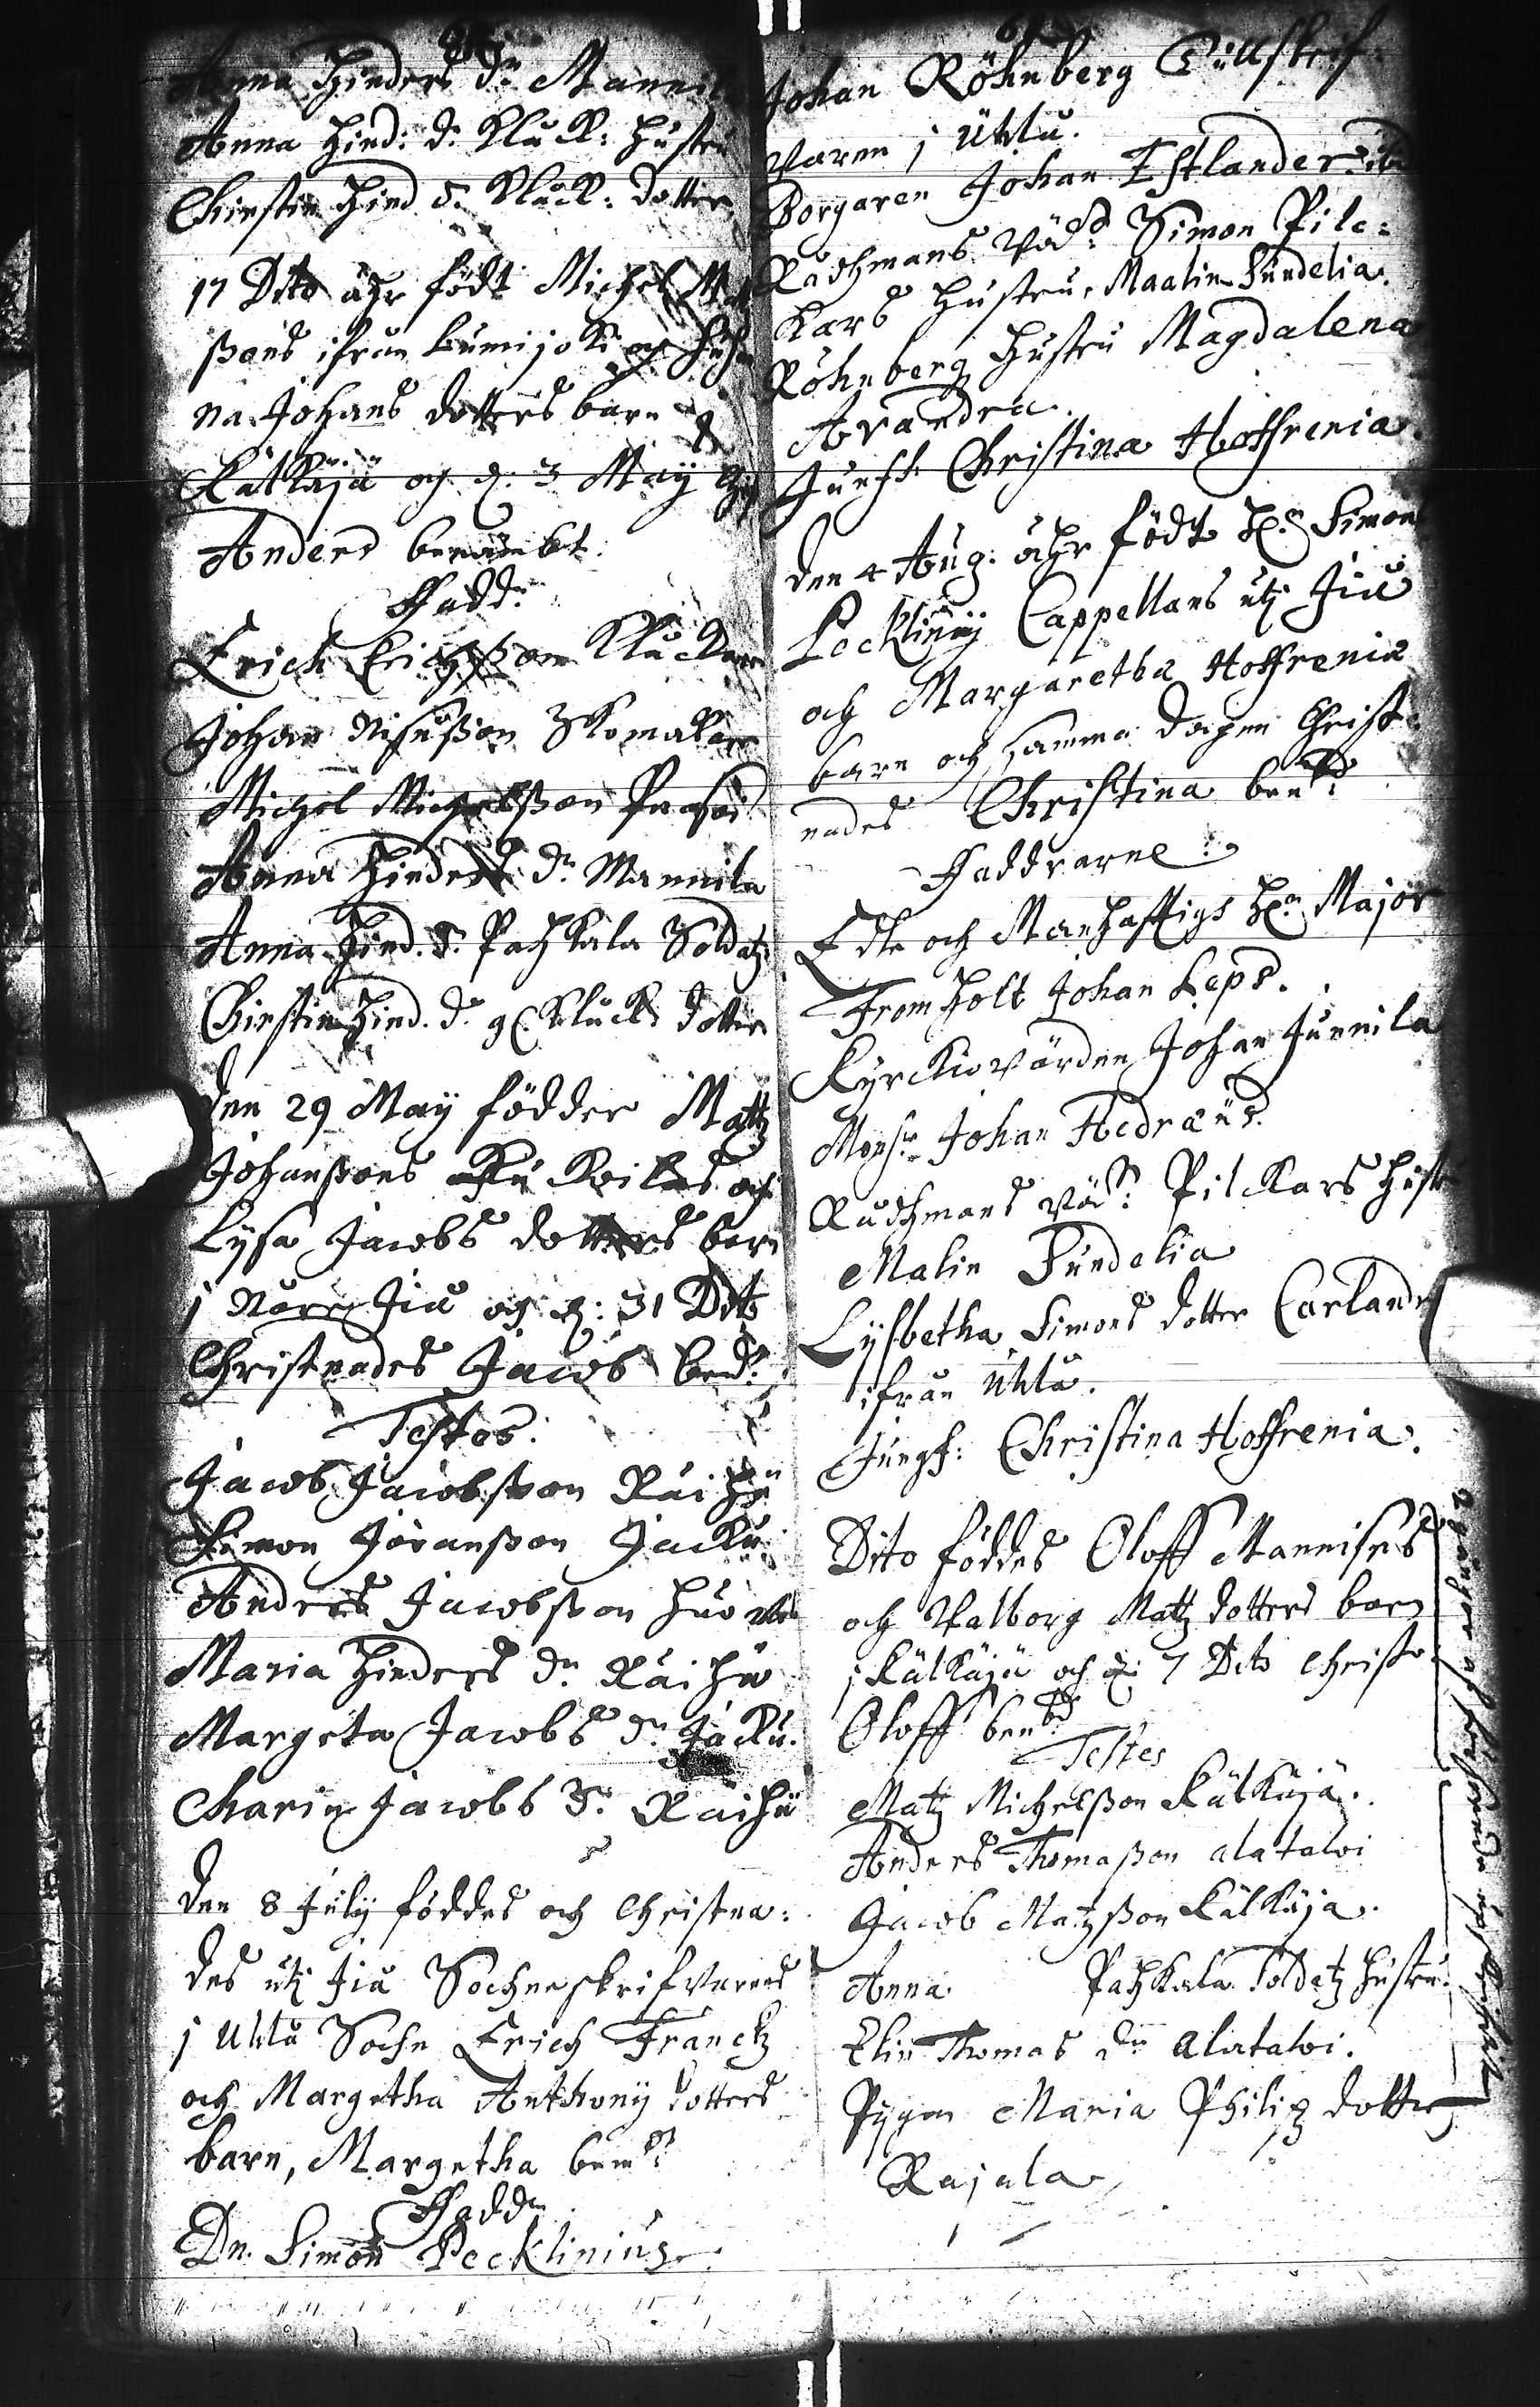 Anna Hinders d:r Mannil
Anna Hind: d: Kluck: hustru
Chirstin Hind d: Kluck: dotter
17 Dito ähr födt Michel Matz
ßons ifrån Lumijoki och
na Johans dotters barn i
Kälkäjä och d: 3 Maij
Anders benämbt.
Fadd:r
Erich Erichßon Kluckare
Johan Nisusßon Skomakare
Michel Michelßon
Anna Hinders d:r Mannila
Anna Hind. d:r Pahkala Soldatz
Chirstin Hind. d: Kluck: dotter
den 29 Maij födder Mattz
Johanßons och
Lysa Jacobs dotters barn
j Norr Jiå och d: 31 Dito
Christnades Jacob ben:d
Testes:
Jacob Jacobsson Räihä
Simon Jöranßon Jacku
Anders Jacobsson
Maria Hinders d:r Räihä
Margeta Jacobs d:r Jacku.
Charin Jacobs d:r Räihä
den 8 Julij föddes och Christna:
des uti Jiå Sochneskrifvarens
j Uhlå Sochn Erich Franckz
och Margetha Anthonij dotters
barn, Margetha bem:d
Fadd:r
Dn. Simon Pecklinius
Johan Röhnberg Tullskrif
varen j Uhlu.
Borgaren Johan Estlander ib:
Rådhmans Wäd:d Simon Pilc:
kars hustru, Maalin Sundelia.
Röhnberg hustru Magdalena
Arvandra.
Jungf: Christina Hoffrenia.
den 4 Aug: ähr födt H:r Simon
Pecklinij Cappellans uti Jiå
och Margaretha Hoffrenia
barn och samma dagen Christ:
nades Christina ben:d
Faddrarne:
Edle och Manhafftige H:r Major
Fromholt Johan Leps.
Kyrckiowärden Johan Junnila
Mons:r Johan Hedræus.
Rådhmans Wäd: Pilckars hustr
Malin Sundelia
Lysbetha Simons dotter Carlander
ifrån Uhlå.
Jungf: Christina Hoffrenia.
Dito föddes Oloff Mannises
och Walborg Matz dotters barn
j Kälkäjä och d: 7 Dito Christn:
Oloff ben:bd
Testes
Matz Michelßon Kälkäjä.
Anders Thomaßon alatalvi
Jacob Matzßon Kälkäja.
Anna Pahkala Soldatz hustru.
Elin Thomas d:r alatalvi.
Pigan Maria Philip dotter
Rajala